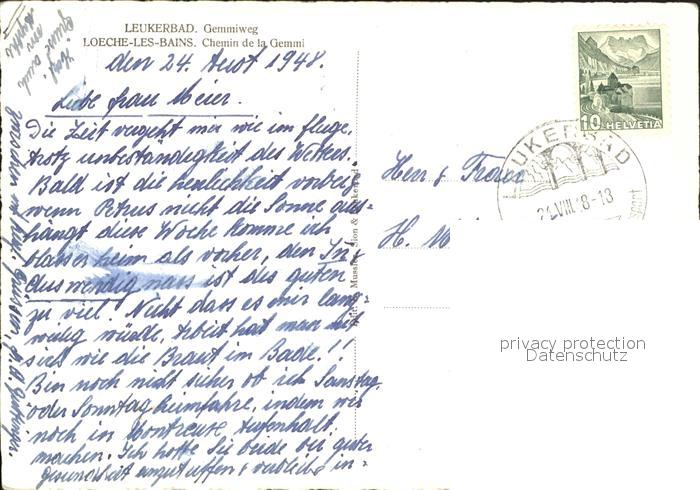 LEUKERBAD. Gemmiweg
LOECHE-LES-BAINS. Chemin de la Gemmi
den 24. Aust 1948.
Liebe Frau Meier.
Die Zeit vergeht mir wie im fluge,
trotz unbeständigkeit des Wetters.
Bald ist die herlichkeit vorbei,
wenn Petrus nicht die Sonne aus-
hängt diese Woche komme ich
blasser heim als vorher, den In &
Auswendig nass ist des guten
zu viel. Nicht dass es mir lang-
weilig würde, Arbeit hat man mit
sich wie die Braut im Bade.!!
Bin noch nicht sicher ob ich Samstag
oder Sonntag heimfahre, indem wir
noch in Montreux Aufenhalt
machen. Ich hoffe Sie beide bei guter
Gesundheit anzutreffen & verbleibe in-
zwischen mit
Herr & Frau
H. M
10 HELVETIA
LEUKERBAD
24.VIII.48-18
privacy protection
Datenschutz